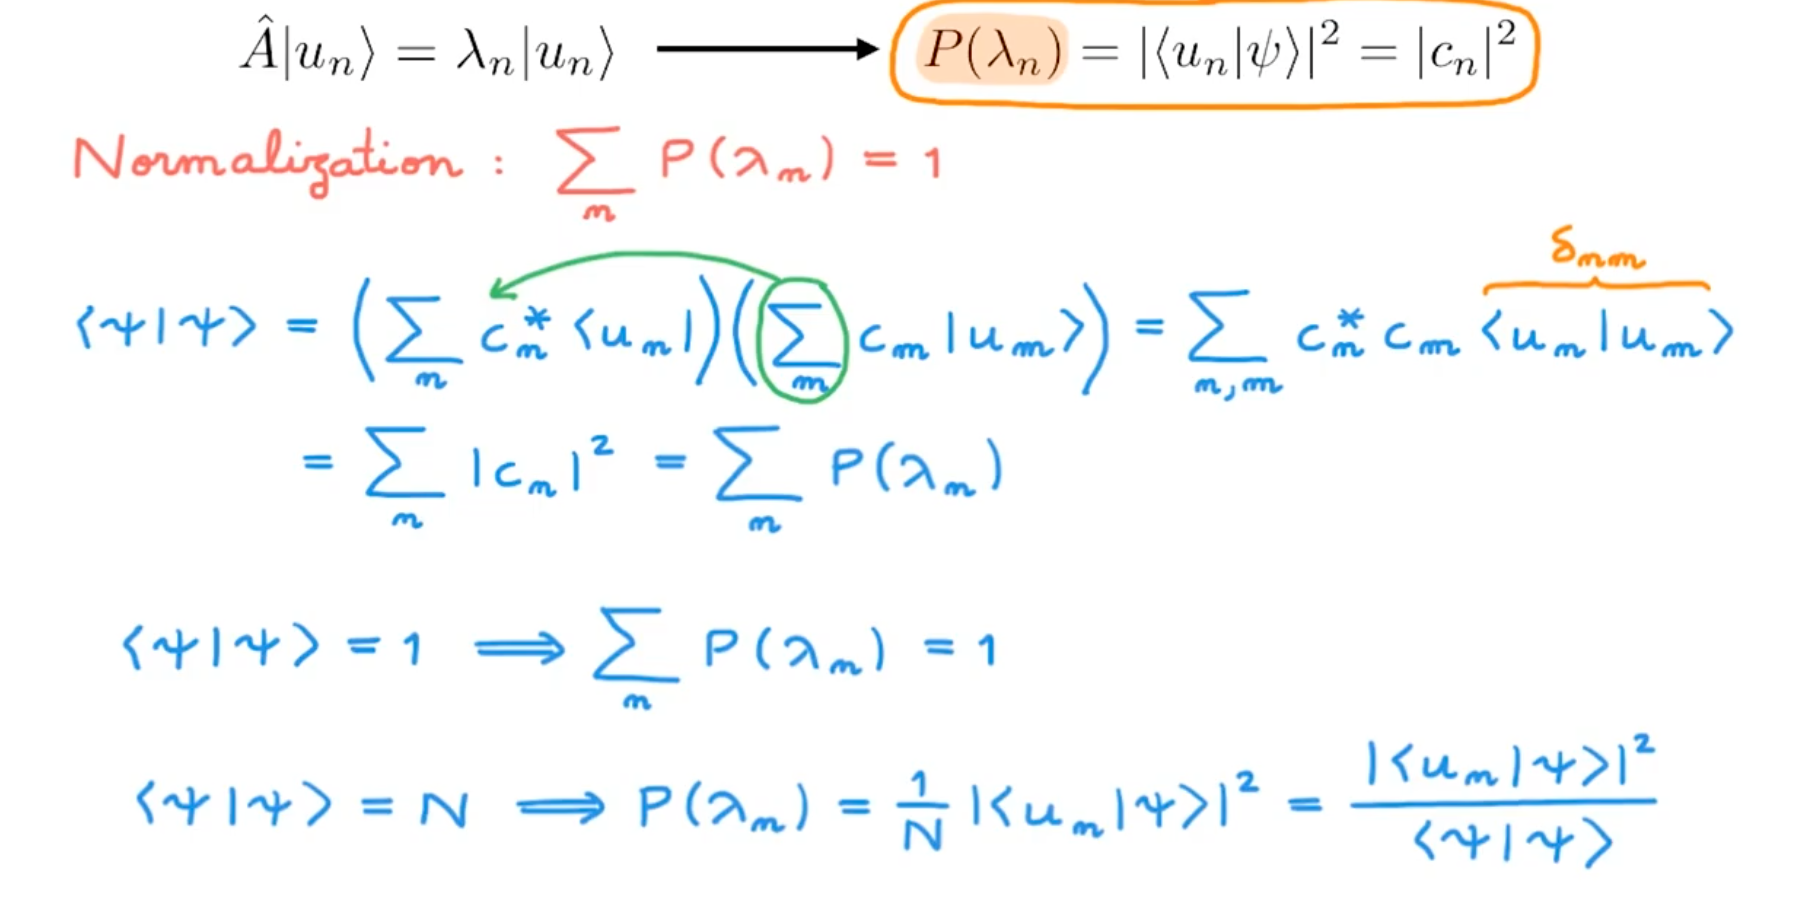 Â|uₙ⟩ = λₙ|uₙ⟩ ⟶ P(λₙ) = |⟨uₙ|ψ⟩|² = |cₙ|²
Normalization : ∑ₙ P(λₙ) = 1
δₙₘ
⟨ψ|ψ⟩ = (∑ₙ cₙ* ⟨uₙ|)(∑ₘ cₘ |uₘ⟩) = ∑ₙ,ₘ cₙ* cₘ ⟨uₙ|uₘ⟩
= ∑ₙ |cₙ|² = ∑ₙ P(λₙ)
⟨ψ|ψ⟩ = 1 ⟹ ∑ₙ P(λₙ) = 1
⟨ψ|ψ⟩ = N ⟹ P(λₙ) = 1/N |⟨uₙ|ψ⟩|² = |⟨uₙ|ψ⟩|² / ⟨ψ|ψ⟩